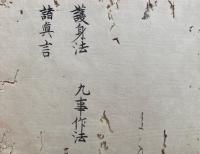 護身法　九事作法
諸真言